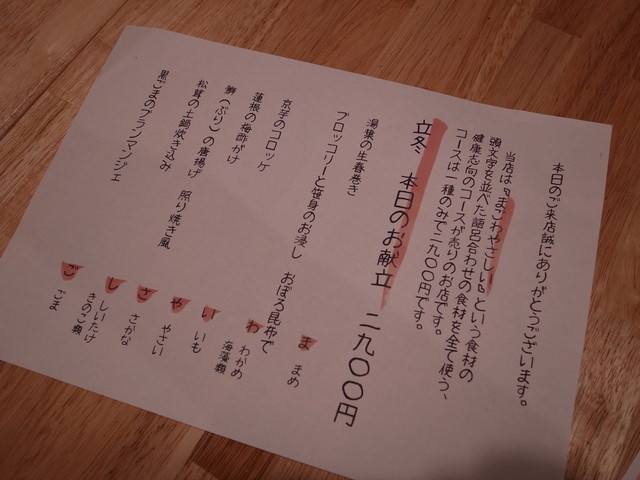 本日のご来店誠にありがとうございます。
当店は『まごわやさしい』という食材の
頭文字を並べた語呂合わせの食材を全て使う、
健康志向のコースが売りのお店です。
コースは一種のみで二九〇〇円です。
立冬　本日のお献立　二九〇〇円
湯葉の生春巻き
ブロッコリーと笹身のお浸し　おぼろ昆布で
京芋のコロッケ
蓮根の梅酢がけ
鰤(ぶり)の唐揚げ　照り焼き風
松茸の土鍋炊き込み
黒ごまのブランマンジェ
ま　まめ
わ　わかめ
海藻類
い　いも
や　やさい
さ　さかな
し　しいたけ
きのこ類
ご　ごま